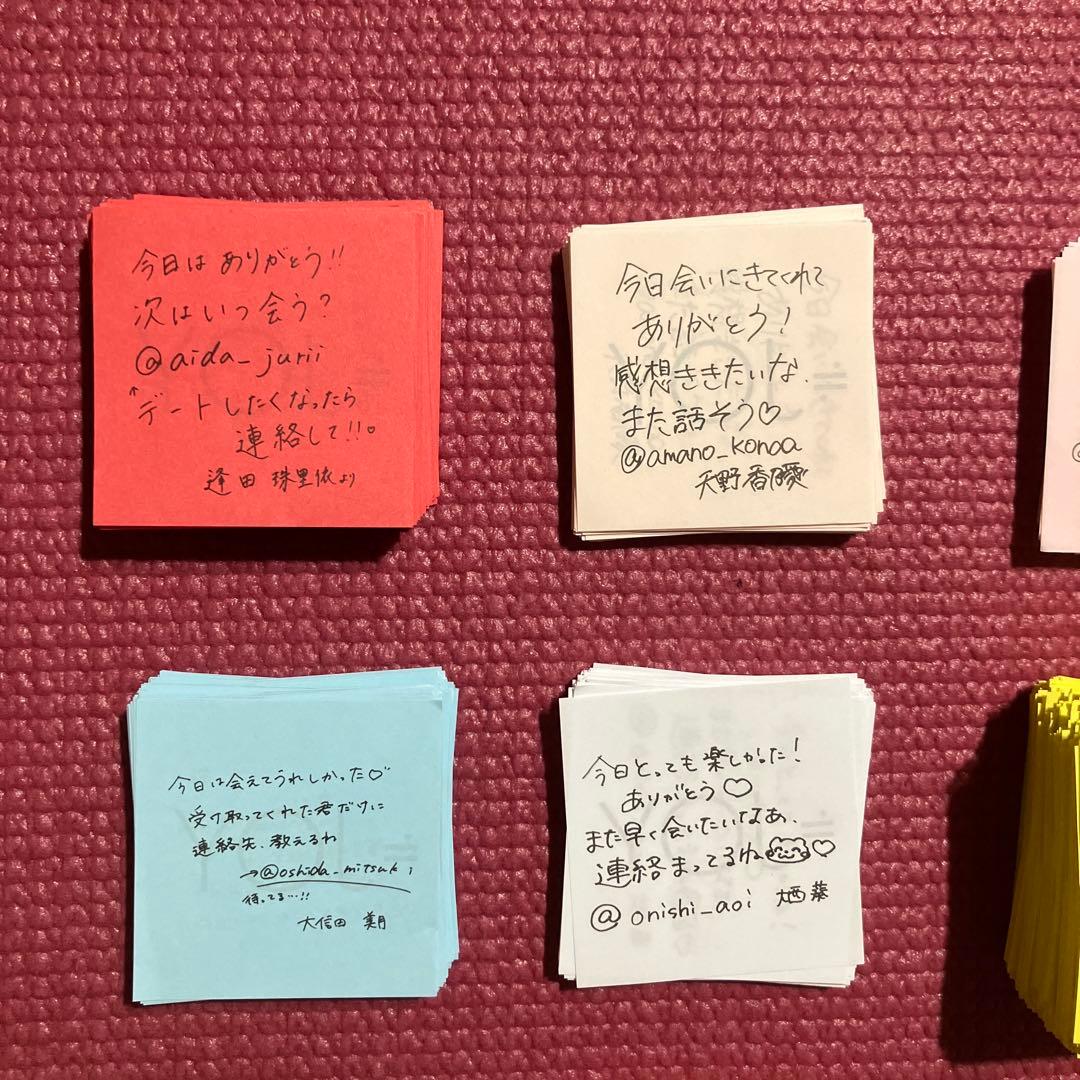 今日は ありがとう!!
次はいつ会う?
@aida_jurii
↑デートしたくなったら
連絡して!!。
逢田 珠里依より
今日会いにきてくれて
ありがとう!
感想ききたいな、
また話そう♡
@amano_konoa
天野香乃愛
今日は会えてうれしかった♡
受け取ってくれた君だけに
連絡先、教えるね
→@oshida_mitsuki
待ってる…!!
大信田 美月
今日とっても楽しかった!
ありがとう♡
また早く会いたいなあ、
連絡まってるね♡
@onishi_aoi 大西 葵